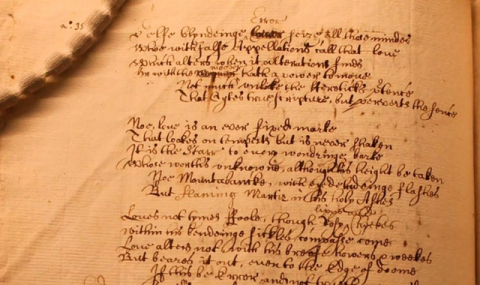 Error
selfe blyndeinge seize all those mindes
Who with false Appellations call that love
Which alters when it alterations finds
Or with the mover hath a power to move
Not much unlike the Hereticks
That scites true scripture, but perverts the sence
Noe, love is an ever fixed marke
That lookes on tempests but is never shaken
It is the starr to every wandringe barke
Whose worths unknowne, although his height be taken
Noe Mountebanke, with eye deludeinge flashes
But flameing Martir in his holy Ashes
Loves not tymes foole, though Rosy lipps & Cheekes
Within his bendeinge sickles compasse come
Love alters not with his breefe howers & weekes
But beares it out, even to the Edge of doome
If this be Error and not